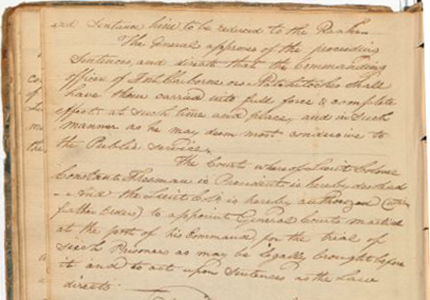 and Sentence him to be reduced to the Ranks.
The General approves of the preceeding
Sentences and directs that the Commanding
officer of Fort Claiborne or Natchitoches shall
have them carried into full force & complete
effect at such time and place, and in such
manner as he may deem most conducive to
the Public service.
The Court whereof Lieut Colonel
Constant Freeman is President is hereby dissolved
And the Lieut Col is hereby authorized (until
further Orders) to appoint General Courts martial
at the post of his Command for the trial of
such Prisoners as may be legally brought before
it and to act upon Sentences as the Law
directs.